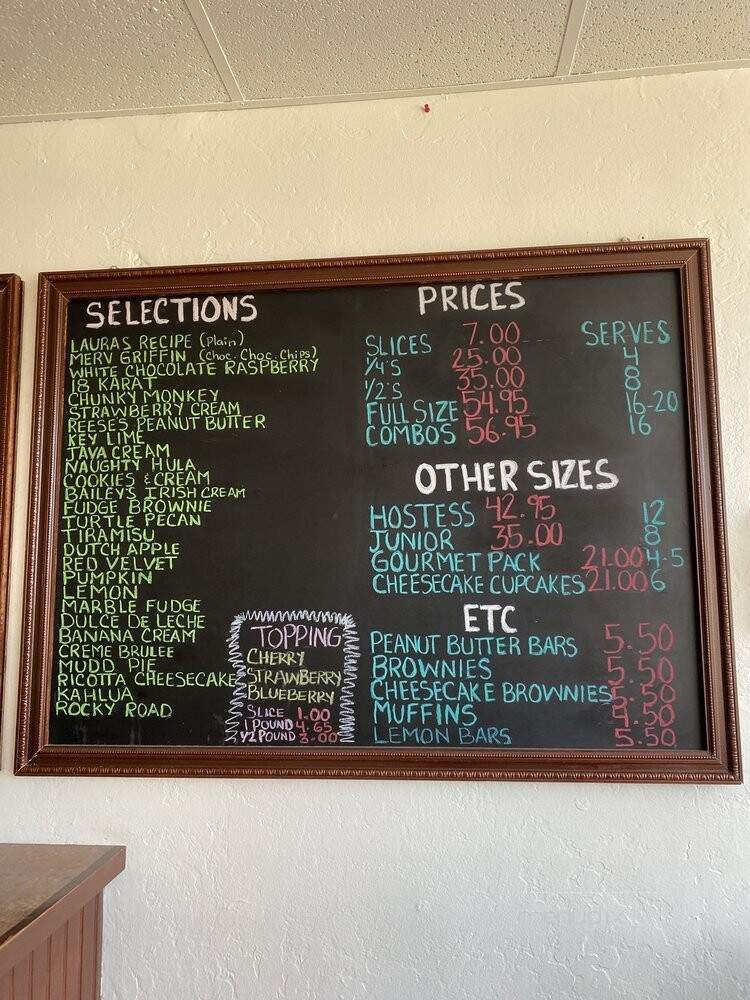 SELECTIONS
LAURAS RECIPE (Plain)
MERV GRIFFIN (Choc. Choc. Chips)
WHITE CHOCOLATE RASPBERRY
18 KARAT
CHUNKY MONKEY
STRAWBERRY CREAM
REESES PEANUT BUTTER
KEY LIME
JAVA CREAM
NAUGHTY HULA
COOKIES & CREAM
BAILEYS IRISH CREAM
FUDGE BROWNIE
TURTLE PECAN
TIRAMISU
DUTCH APPLE
RED VELVET
PUMPKIN
LEMON
MARBLE FUDGE
DULCE DE LECHE
BANANA CREAM
CREME BRULEE
MUDD PIE
RICOTTA CHEESECAKE
KAHLUA
ROCKY ROAD
TOPPING
CHERRY
STRAWBERRY
BLUEBERRY
SLICE 1.00
1 POUND 4.65
1/2 POUND 3.00
PRICES
SERVES
SLICES 7.00
1/4'S 25.00 4
1/2'S 35.00 8
FULL SIZE 54.95 16-20
COMBOS 56.95 16
OTHER SIZES
HOSTESS 42.95 12
JUNIOR 35.00 8
GOURMET PACK 21.00 4-5
CHEESECAKE CUPCAKES 21.00 6
ETC
PEANUT BUTTER BARS 5.50
BROWNIES 5.50
CHEESECAKE BROWNIES 5.50
MUFFINS 4.50
LEMON BARS 5.50